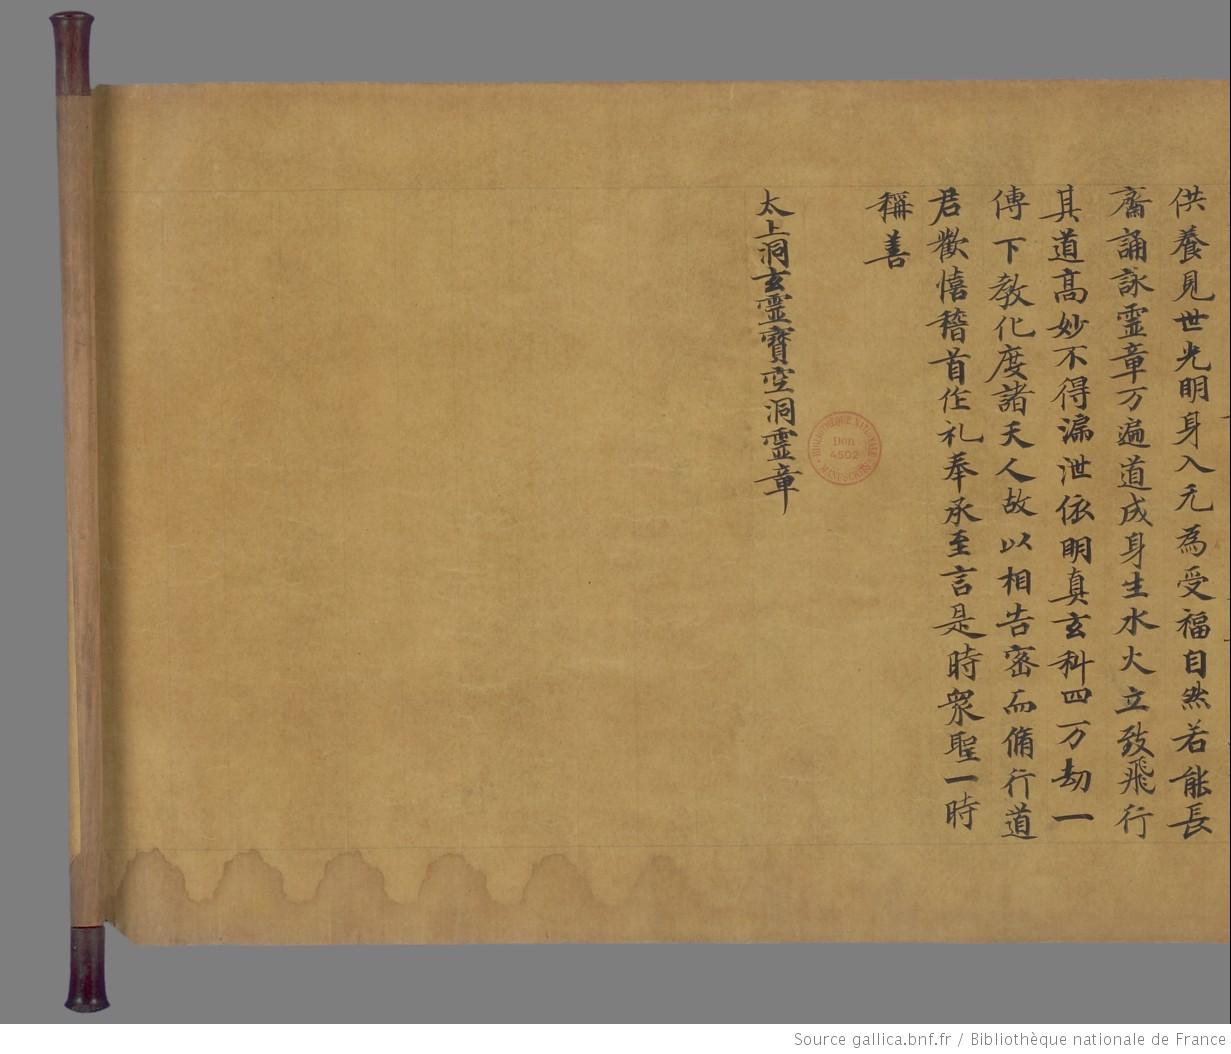 供養見世光明身入无為受福自然若能長
齋誦詠靈章万遍道成身生水火立致飛行
其道高妙不得漏泄依明真玄科四万劫一
傳下教化度諸天人故以相告密而脩行道
君歡憘稽首作礼奉承至言是時衆聖一時
稱善
太上洞玄靈寶空洞靈章
BIBLIOTHÈQUE NATIONALE
Don
4502
MANUSCRITS
Source gallica.bnf.fr / Bibliothèque nationale de France